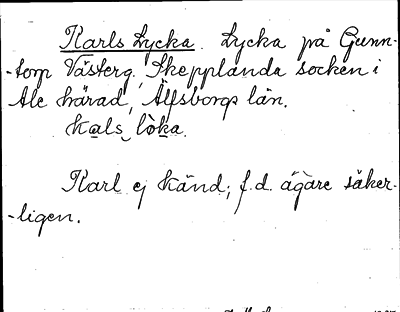 Karls Lycka. Lycka på Gunn-
-torp Västerg. Skepplanda socken i
Ale härad, Älfsborgs län.
Kals löka.
Karl ej känd; f.d. ägare säker-
-ligen.